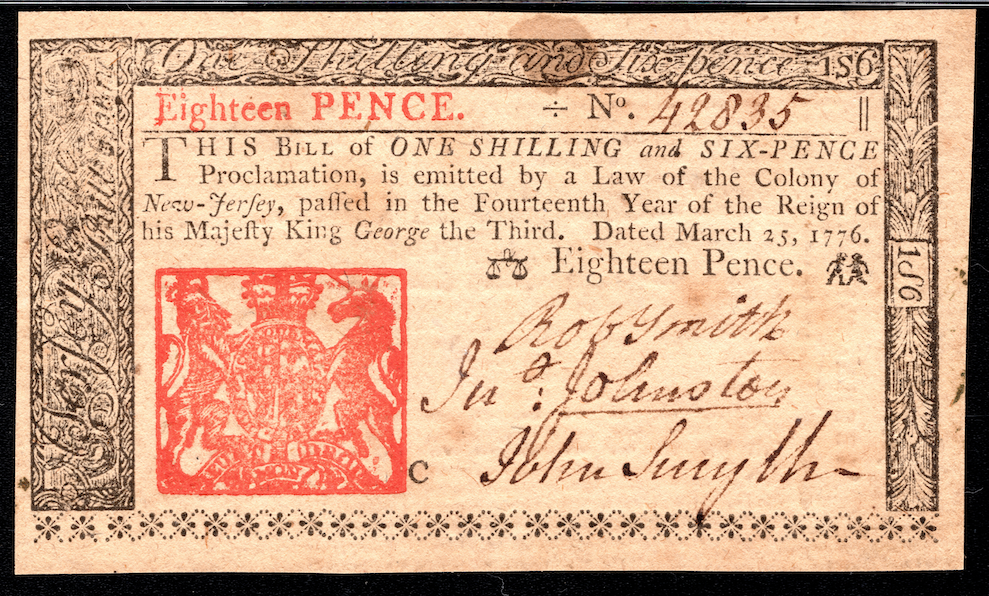 One Shilling and Six-pence 1S6
Eighteen PENCE. ÷ Nº. 42835 ||
THIS BILL of ONE SHILLING and SIX-PENCE
Proclamation, is emitted by a Law of the Colony of
New-Jerſey, paſſed in the Fourteenth Year of the Reign of
his Majeſty King George the Third. Dated March 25, 1776.
Eighteen Pence.
1S6
Robt Smith
Jnº: Johnston
C John Smyth